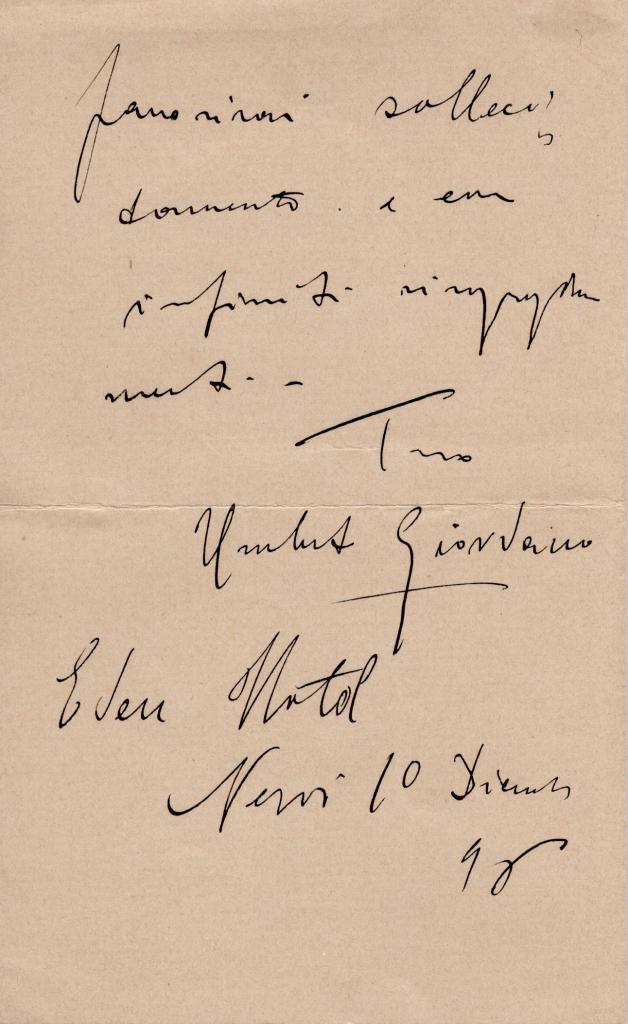 favorirmi solleci,
tamente. e con
infiniti ringrazia
menti. -
Tuo
Umberto Giordano
Eden Hotel
Nervi 10 Dicemb
98